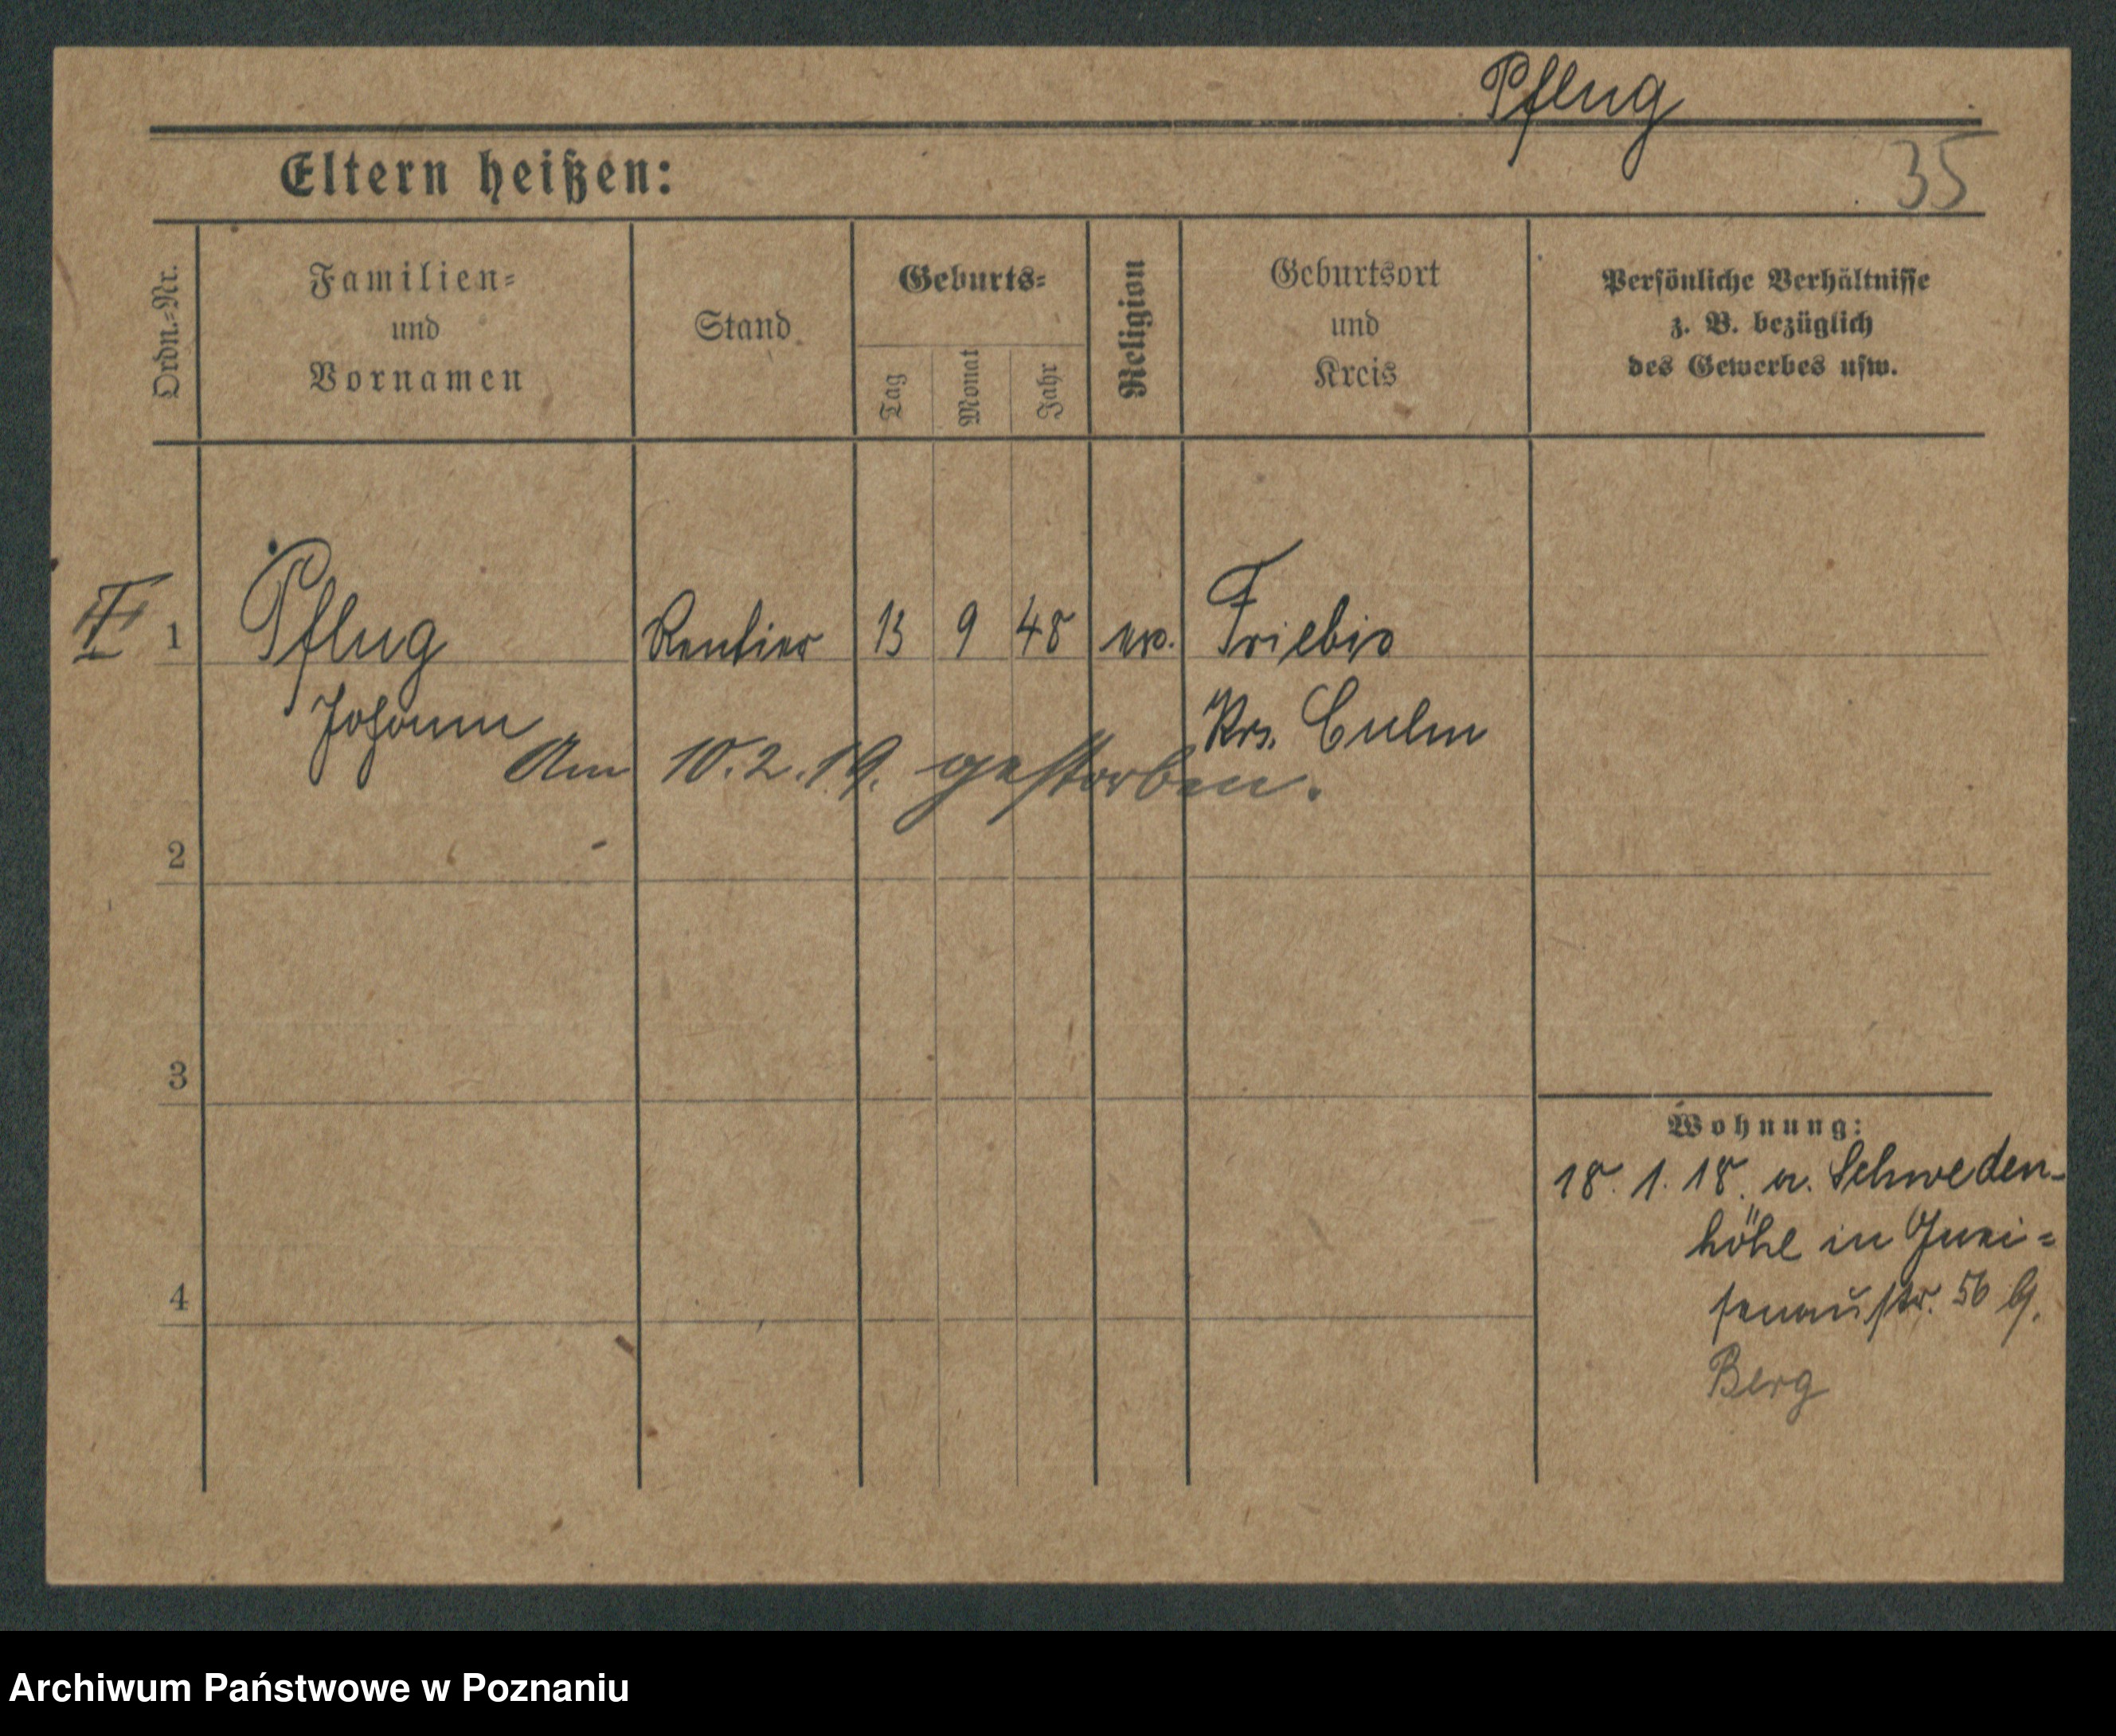 Pflug
35
Eltern heißen:
Ordn.=Nr.
Familien=
und
Vornamen
Stand
Geburts=
Tag
Monat
Jahr
Religion
Geburtsort
und
Kreis
Persönliche Verhältnisse
z. B. bezüglich
des Gewerbes usw.
1 Pflug Rentier 13 9 48
Johann Krs. Culm
Am 10.2.19. gestorben.
2
3
4
Wohnung:
18. 1. 18. a. Schweden-
höhe in Gnei=
senaustr. 56 b.
Berg
Archiwum Państwowe w Poznaniu